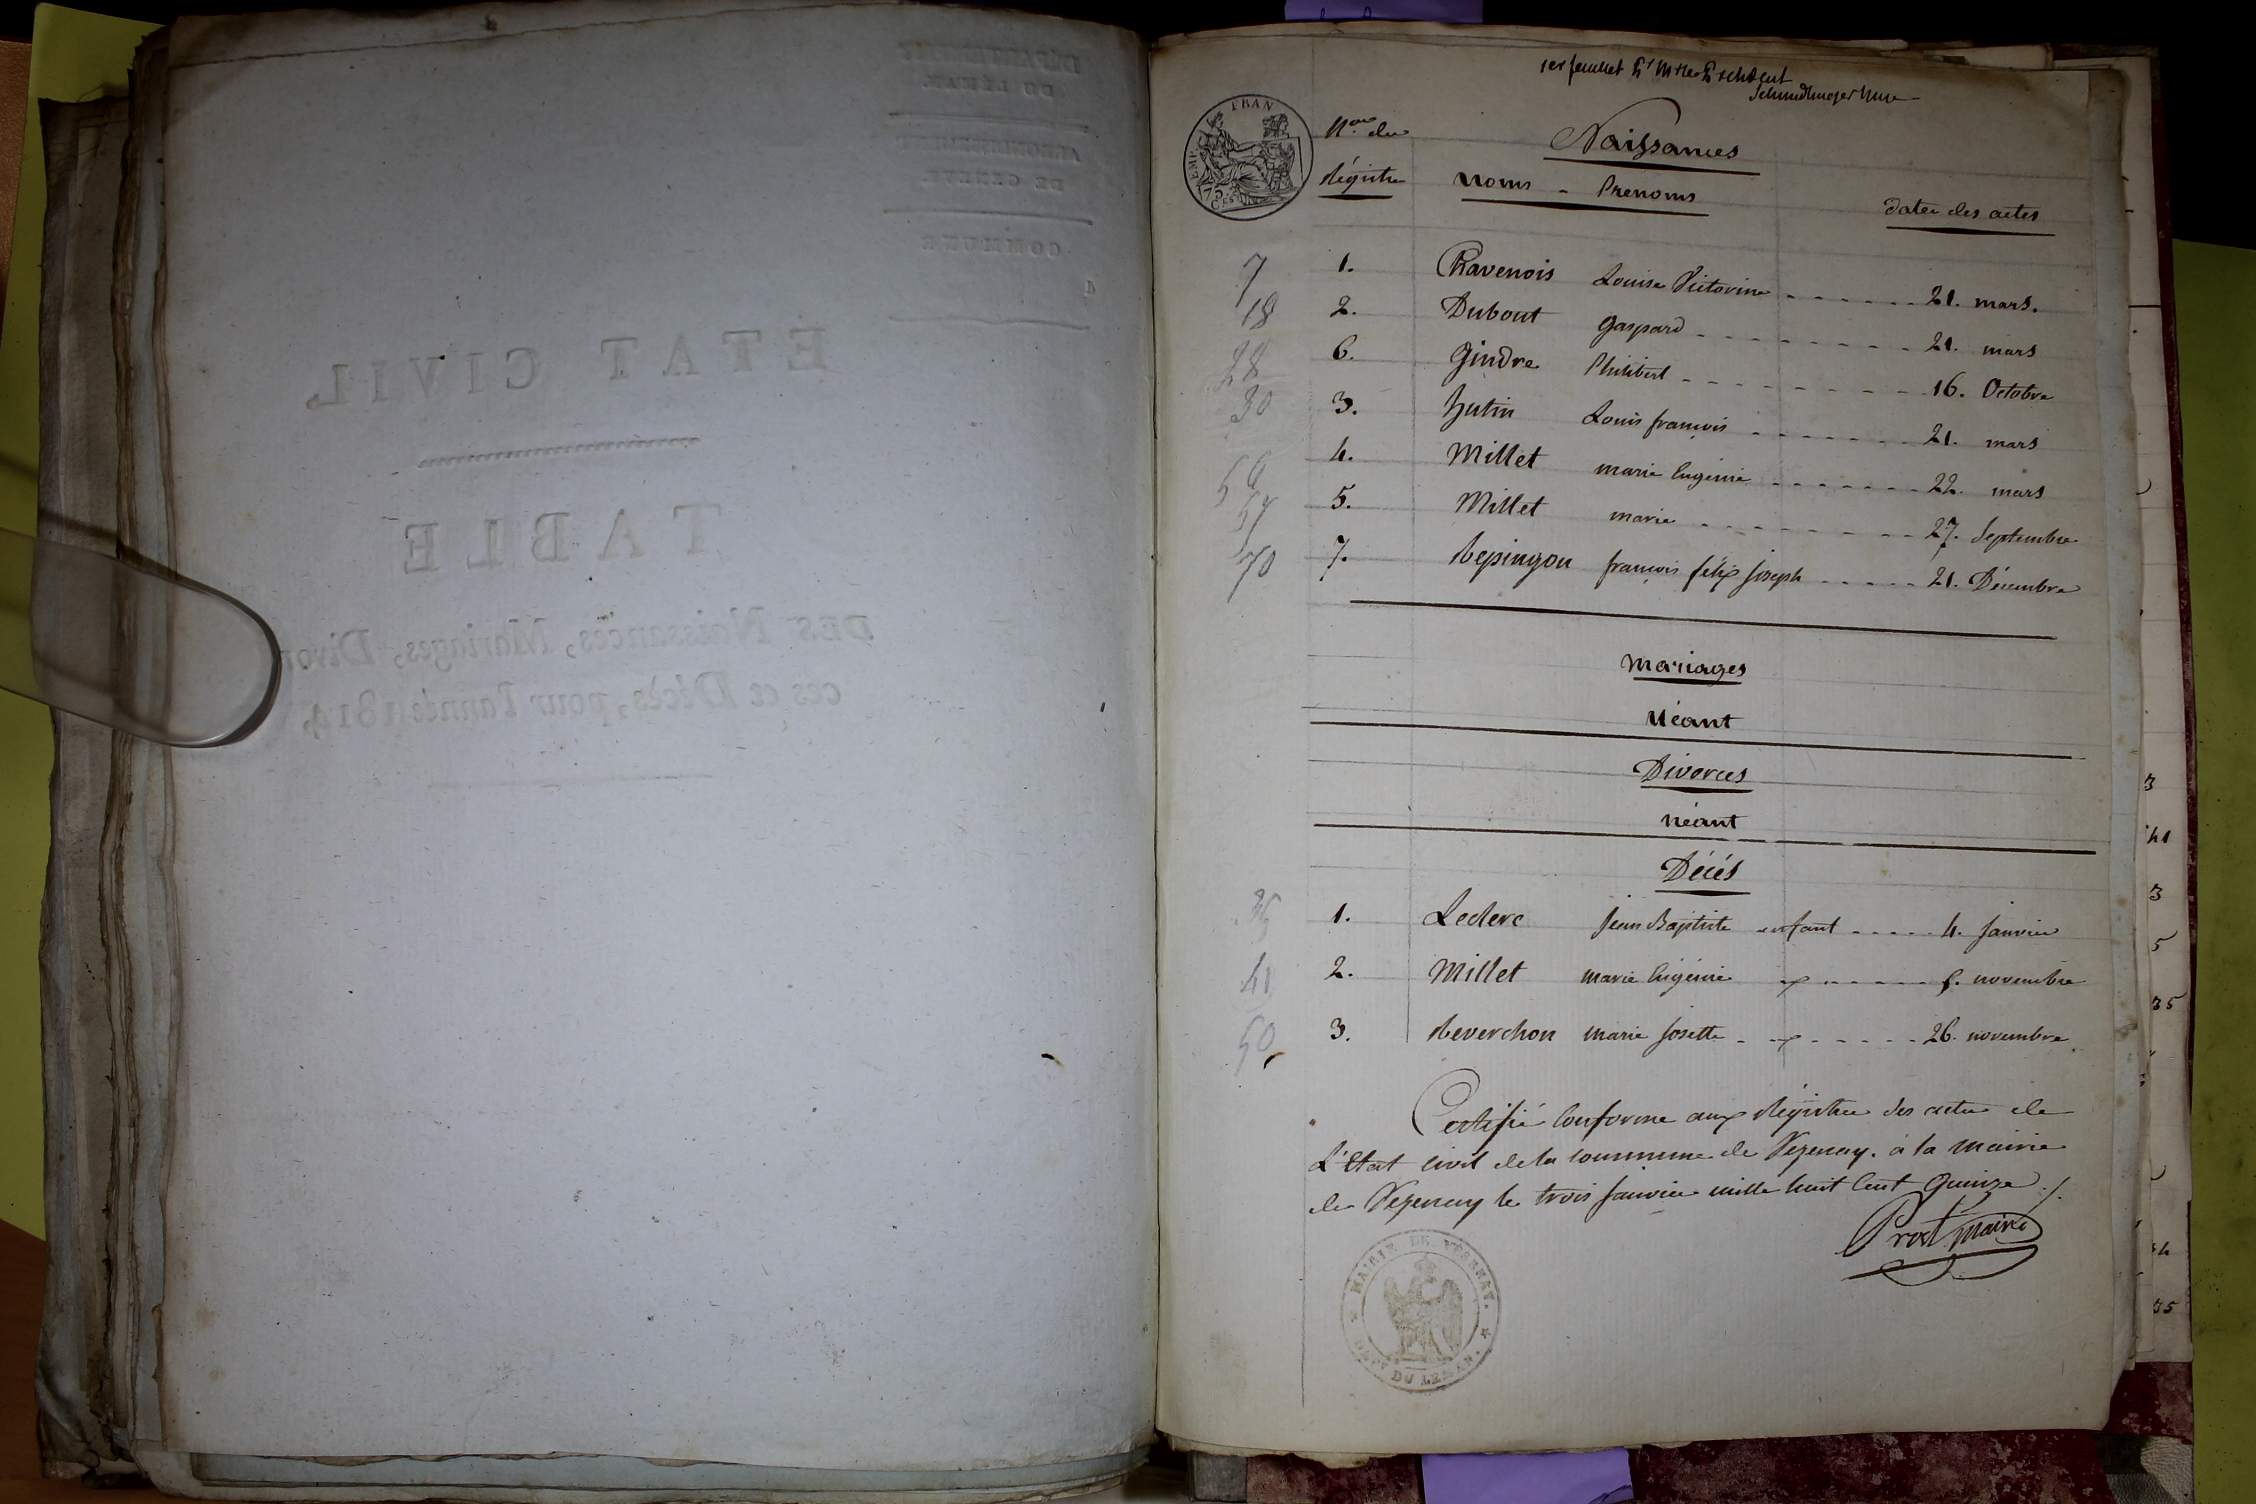 DÉPARTEMENT
DU LÉMAN.
ARRONDISSEMENT
DE GENÈVE
COMMUNE
d
ETAT CIVIL
TABLE
DES Naissances, Mariages, Divor
ces et Décès, pour l'année 1814,
1er feuillet
EMP. FRAN
75 CES
Nos du
Régistre
Naissances
Noms - Prenoms
Dates des actes
7 1. Chavenois Louise Victorine 21. mars.
18 2. Dubout Gaspard 21. mars
28 6. Gindre Philibert 16. Octobre
30 3. hutin Louis françois 21. mars
56 4. Millet marie Eugénie 22. mars
57 5. Millet marie 27. Septembre
70 7. Repingon françois félix Joseph 21. Décembre
Mariages
Néant
Divorces
néant
Décés
35 1. Leclerc Jean Baptiste enfant 4. Janvier
41 2. Millet marie Eugénie novembre
50 3. Reverchon marie Josette 26. novembre
Certifié Conforme aux Régistres des actes de
L'Etat civil de la commune de Vezenay. à la mairie
de Vezenay le trois Janvier mille huit Cent Quinze ./.
Prost maire
MAIRIE DE VÉSENAY. DEPT DU LEMAN.
3
41
3
5
35
35